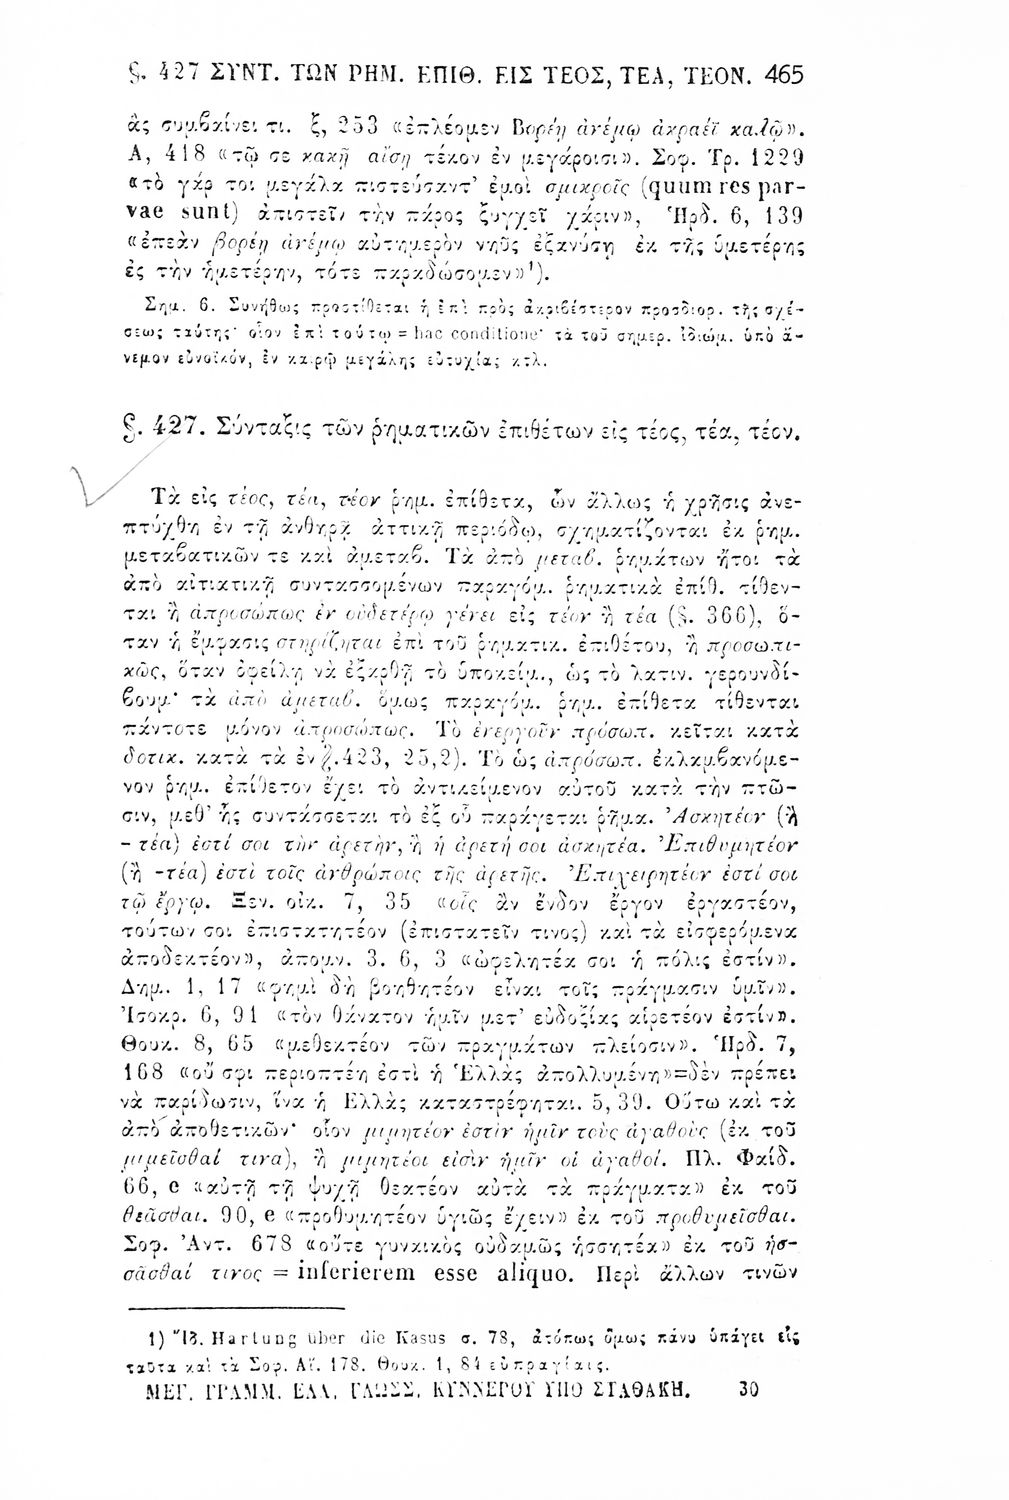 §. 427 ΣΥΝΤ. ΤΩΝ ΡΗΜ. ΕΠΙΘ. ΕΙΣ ΤΕΟΣ, ΤΕΑ, ΤΕΟΝ. 465
ἃς συμβαίνει τι. ξ, 253 «ἐπλέομεν Βορέῃ ἀνέμῳ ἀκραέϊ καλῷ».
Α, 418 «τῷ σε κακῇ αἴσῃ τέκον ἐν μεγάροισι». Σοφ. Τρ. 1229
«τὸ γάρ τοι μεγάλα πιστεύσαντ’ ἐμοὶ σμικροῖς (quum res par-
vae sunt) ἀπιστεῖν τὴν πάρος ξυγχεῖ χάριν», Ἡρδ. 6, 139
«ἐπεὰν βορέῃ ἀνέμῳ αὐτημερὸν νηῦς ἐξανύσῃ ἐκ τῆς ὑμετέρης
ἐς τὴν ἡμετέρην, τότε παραδώσομεν»¹).
Σημ. 6. Συνήθως προστίθεται ἡ ἐπὶ πρὸς ἀκριβέστερον προσδιορ. τῆς σχέ-
σεως ταύτης· οἷον ἐπὶ τούτῳ = hac conditione· τὰ τοῦ σημερ. ἰδιώμ. ὑπὸ ἄ-
νεμον εὐνοϊκόν, ἐν καιρῷ μεγάλης εὐτυχίας κτλ.
§. 427. Σύνταξις τῶν ῥηματικῶν ἐπιθέτων εἰς τέος, τέα, τέον.
Τὰ εἰς τέος, τέα, τέον ῥημ. ἐπίθετα, ὧν ἄλλως ἡ χρῆσις ἀνε-
πτύχθη ἐν τῇ ἀνθηρᾷ ἀττικῇ περιόδῳ, σχηματίζονται ἐκ ῥημ.
μεταβατικῶν τε καὶ ἀμεταβ. Τὰ ἀπὸ μεταβ. ῥημάτων ἤτοι τὰ
ἀπὸ αἰτιατικῇ συντασσομένων παραγόμ. ῥηματικὰ ἐπίθ. τίθεν-
ται ἢ ἀπροσώπως ἐν οὐδετέρῳ γένει εἰς τέον ἢ τέα (§. 366), ὅ-
ταν ἡ ἔμφασις στηρίζηται ἐπὶ τοῦ ῥηματικ. ἐπιθέτου, ἢ προσωπι-
κῶς, ὅταν ὀφείλῃ νὰ ἐξαρθῇ τὸ ὑποκείμ., ὡς τὸ λατιν. γερουνδί-
βουμ· τὰ ἀπὸ ἀμεταβ. ὅμως παραγόμ. ῥημ. ἐπίθετα τίθενται
πάντοτε μόνον ἀπροσώπως. Τὸ ἐνεργοῦν πρόσωπ. κεῖται κατὰ
δοτικ. κατὰ τὰ ἐν §.423, 25,2). Τὸ ὡς ἀπρόσωπ. ἐκλαμβανόμε-
νον ῥημ. ἐπίθετον ἔχει τὸ ἀντικείμενον αὐτοῦ κατὰ τὴν πτῶ-
σιν, μεθ’ ἧς συντάσσεται τὸ ἐξ οὗ παράγεται ῥῆμα. Ἀσκητέον (ἢ
- τέα) ἐστί σοι τὴν ἀρετὴν, ἢ ἡ ἀρετή σοι ἀσκητέα. Ἐπιθυμητέον
(ἢ -τέα) ἐστὶ τοῖς ἀνθρώποις τῆς ἀρετῆς. Ἐπιχειρητέον ἐστί σοι
τῷ ἔργῳ. Ξεν. οἰκ. 7, 35 «οἷς ἂν ἔνδον ἔργον ἐργαστέον,
τούτων σοι ἐπιστατητέον (ἐπιστατεῖν τινος) καὶ τὰ εἰσφερόμενα
ἀποδεκτέον», ἀπομν. 3. 6, 3 «ὠφελητέα σοι ἡ πόλις ἐστίν».
Δημ. 1, 17 «φημὶ δὴ βοηθητέον εἶναι τοῖς πράγμασιν ὑμῖν».
Ἰσοκρ. 6, 91 «τὸν θάνατον ἡμῖν μετ’ εὐδοξίας αἱρετέον ἐστίν».
Θουκ. 8, 65 «μεθεκτέον τῶν πραγμάτων πλείοσιν». Ἡρδ. 7,
168 «οὔ σφι περιοπτέη ἐστὶ ἡ Ἑλλὰς ἀπολλυμένη»=δὲν πρέπει
νὰ παρίδωσιν, ἵνα ἡ Ἑλλὰς καταστρέφηται. 5, 39. Οὕτω καὶ τὰ
ἀπὸ ἀποθετικῶν· οἷον μιμητέον ἐστὶν ἡμῖν τοὺς ἀγαθοὺς (ἐκ τοῦ
μιμεῖσθαί τινα), ἢ μιμητέοι εἰσὶν ἡμῖν οἱ ἀγαθοί. Πλ. Φαίδ.
66, e «αὐτῇ τῇ ψυχῇ θεατέον αὐτὰ τὰ πράγματα» ἐκ τοῦ
θεᾶσθαι. 90, e «προθυμητέον ὑγιῶς ἔχειν» ἐκ τοῦ προθυμεῖσθαι.
Σοφ. Ἀντ. 678 «οὔτε γυναικὸς οὐδαμῶς ἡσσητέα» ἐκ τοῦ ἡσ-
σᾶσθαί τινος = inferierem esse aliquo. Περὶ ἄλλων τινῶν
1) Ἴδ. Hartung über die Kasus σ. 78, ἀτόπως ὅμως πάνυ ὑπάγει εἰς
ταῦτα καὶ τὰ Σοφ. Αἴ. 178. Θουκ. 1, 84 εὐπραγίαις.
ΜΕΓ. ΓΡΑΜΜ. ΕΛΛ. ΓΛΩΣΣ. ΚΥΝΝΕΡΟΥ ΥΠΟ ΣΤΑΘΑΚΗ. 30